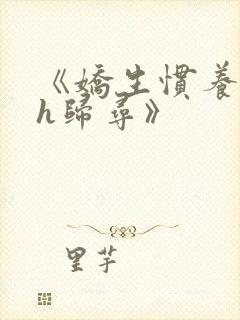 《嬌生慣養
h歸尋》
里芋